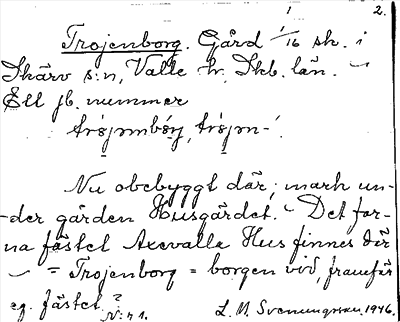 2.
Trojenborg. Gård 1/16 sk. i
Skärv s:n, Valle hr. Skb. län.
Ett jb. nummer
Nu obebyggt där, mark un-
der gården Husgärdet. Det for-
na fästet Axevalla Hus finnes där
= Trojenborg = borgen vid, framför
eg. fästet.
L. M. Svenungsson. 1946.